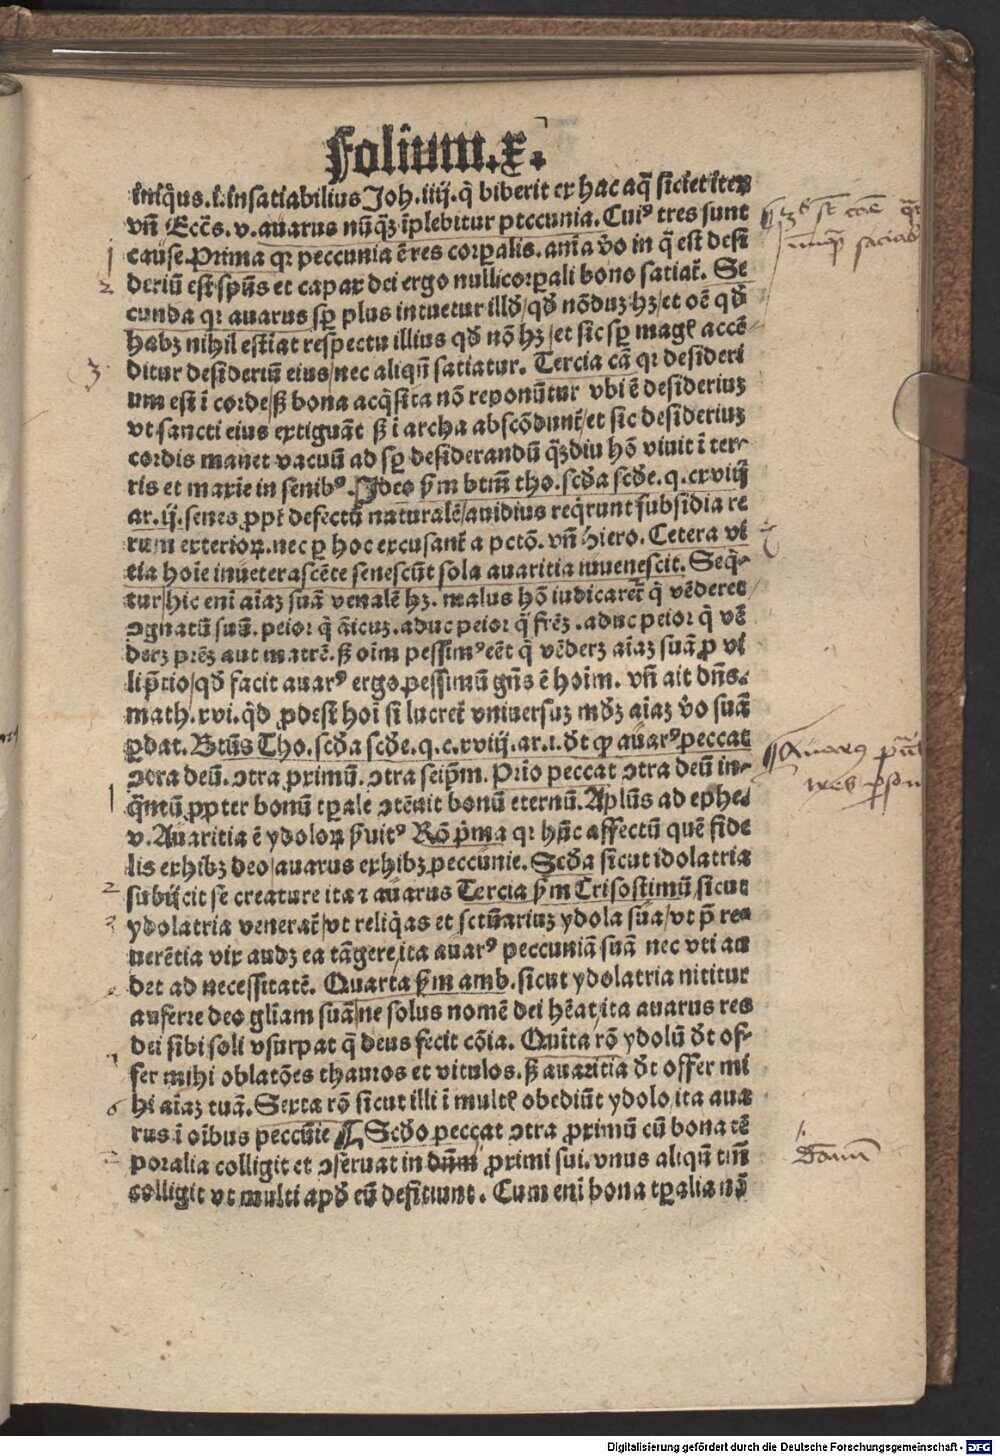 Folium.x.
iniq̄us.i.insatiabilius Joh.iiij.q̄ biberit ex hac aq̄ sitiet iteꝝ
vn̄ Ecc̄s.v.auarus nūq̄ꝫ īplebitur peccunia.Cuiꝰ tres sunt
cause.Prima qꝛ peccunia ē res corꝑalis.anīa v̄o in q̄ est desi
deriū est sp̄ūs et capax dei ergo nulli corꝑali bono satiat̄. Se
cunda qꝛ auarus sꝑ plus intuetur illd̄/qd̄ nōduꝫ hꝫ/et oē qd̄
habꝫ nihil estiat respectu illius qd̄ nō hꝫ/et sic sꝑ magꝭ accē
ditur desideriū eius/nec aliqn̄ satiatur. Tercia cā qꝛ desideri
um est ī corde/ꝭꝫ bona acq̄sita nō reponūtur vbi ē desideriuꝫ
vt sancti eius extiguāt ꝭꝫ ī archa abscōdunt̄/et sic desideriuꝫ
cordis manet vacuū ad sꝑ desiderandū q̄ꝫdiu hō viuit ī ter⸗
ris et maxīe in senibꝰ. Ideo ẜm btm̄ tho.scd̄a scd̄e.q.cxviij
ar.ij.senes ꝓpt̄ defectū naturalē/auidius req̄runt subsidia re
rum exterioꝝ.nec ꝑ hoc excusant̄ a pctō.vn̄ Hiero.Cetera vi
tia hoīe inueterascēte senescūt sola avaritia iuuenescit.Seq̄⸗
tur/hic enī aīaꝫ suā venalē hꝫ. malus hō iudicaret̄ q̄ vēderet
ꝯgnatū suū.peior q̄ āicuꝫ.aduc peior q̄ fr̄eꝫ.aduc peior q̄ vē
derꝫ pr̄eꝫ aut matrē.ꝭꝫ oīm pessimꝰ eēt q̄ vēderꝫ aīaꝫ suā ꝓ vi
li p̄tio/qd̄ facit auarꝰ ergo pessimū gn̄s ē hoīm. vn̄ ait dn̄s.
math.xvi.q̄d ꝓdest hoī si lucret̄ vniuersuꝫ mūdꝫ aīaꝫ v̄o suā
ꝑdat. Btūs Tho.scd̄a scd̄e.q.c.xviij.ar.i.dt̄ ꝙ auarꝰ peccat
ꝯtra deū.ꝯtra proximū.ꝯtra seip̄m.Prīo peccat ꝯtra deū in⸗
q̄ntū ꝓpter bonū tꝑale ꝯtēnit bonū eternū.Apl̄us ad ephe.
v.Auaritia ē ydoloꝝ ẜuitꝰ Rō p̄ma qꝛ hūc affectū quē fide
lis exhibꝫ deo/auarus exhibꝫ peccunie.Scd̄a sicut idolatria
subijcit se creature ita ⁊ auarus Tercia ẜm Crisostimū sicut
ydolatria venerat̄/vt reliq̄as et sctūariuꝫ ydola sua/vt p̄ re⸗
uerētia vix audꝫ ea tāgere/ita auarꝰ peccuniā suā nec vti au
det ad necessitatē. Quarta ẜm amb.sicut ydolatria nititur
auferre deo gl̄iam suā/ne solus nomē dei hēat/ita auarus res
dei sibi soli vsurpat q̄ deus fecit cōia. Quīta rō ydolū dt̄ of⸗
fer mihi oblatōes thauros et vitulos.ꝭꝫ auaritia dt̄ offer mi
hi aīaꝫ tuā.Sexta rō sicut illi ī multꝭ obediūt ydolo ita aua
rus ī oībus peccūie Scd̄o peccat ꝯtra ꝓximū cū bona tē
poralia colligit et ꝯseruat in dn̄m ꝓximi sui.vnus aliqn̄ tm̄
colligit vt multi apd̄ eū defitiunt. Cum enī bona tꝑalia nō
1
2
3
Auarus
1
2
3
6
2
Dānū
Digitalisierung gefördert durch die Deutsche Forschungsgemeinschaft - DFG